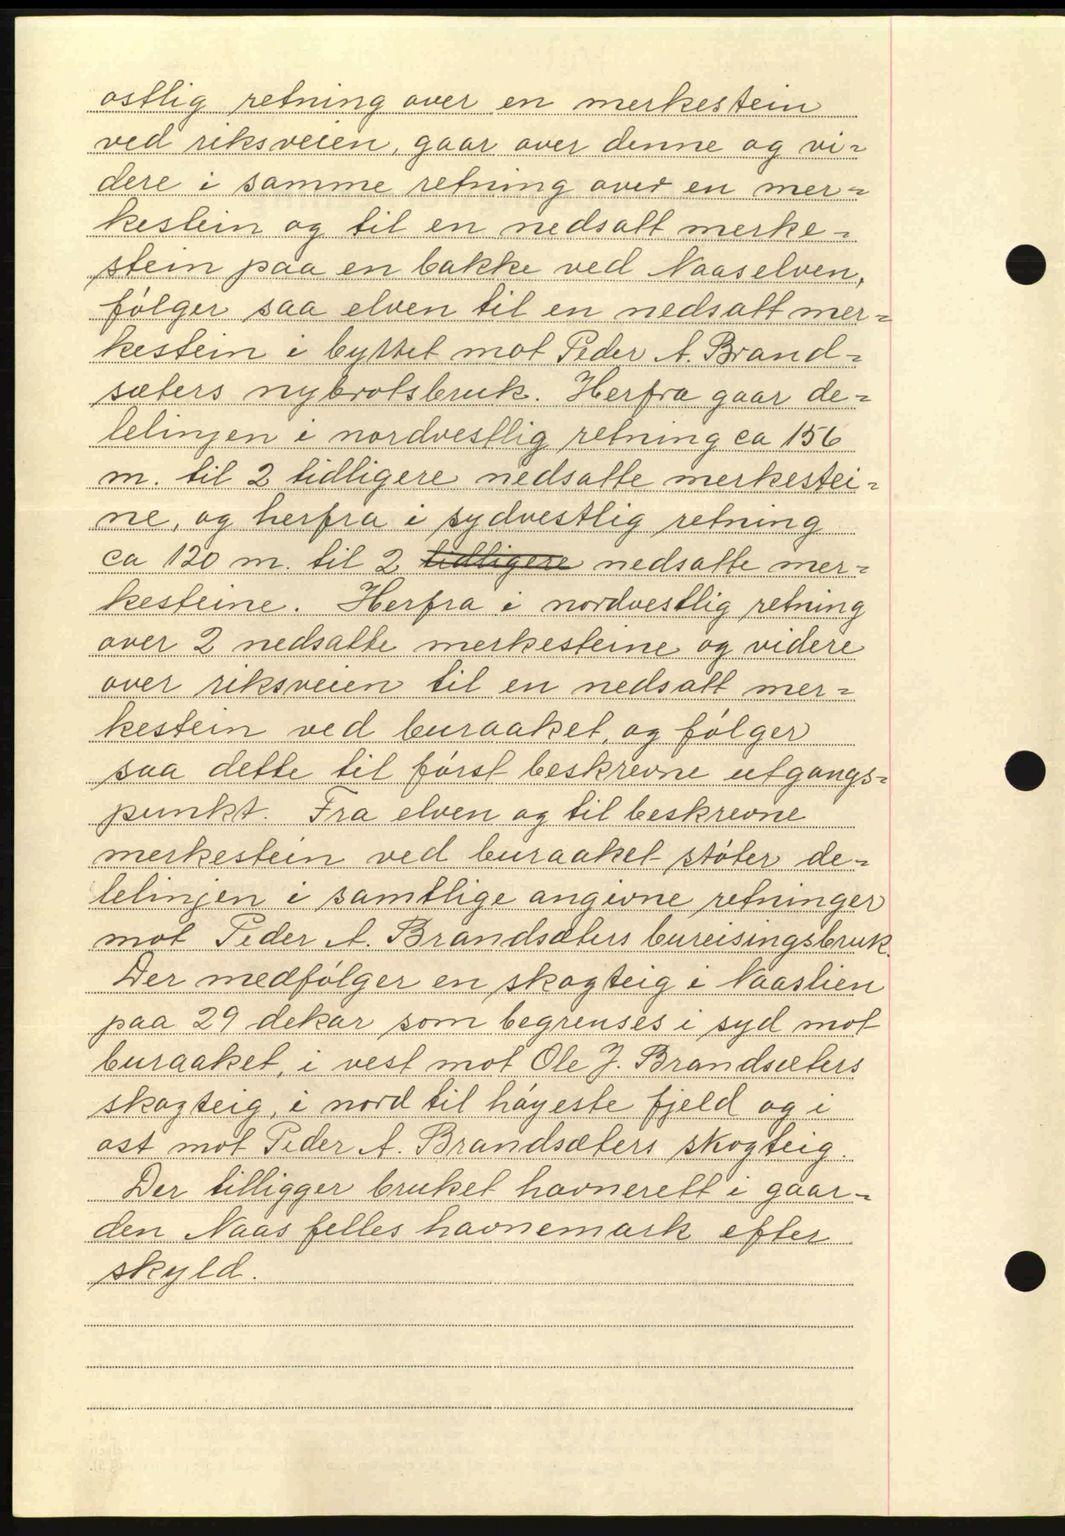 ostlig retning over en merkestein
ved riksveien, gaar over denne og vi=
dere i samme retning over en mer=
kestein og til en nedsatt merke=
stein paa en bakke ved Naaselven,
følger saa elven til en nedsatt mer=
kestein i byttet mot Peder A. Brand=
sæters nybrotsbruk. Herfra gaar de=
lelinjen i nordvestlig retning ca 156
m. til 2 tidligere nedsatte merkestei=
ne, og herfra i sydvestlig retning
ca 120 m. til 2 tidligere nedsatte mer=
kesteine. Herfra i nordvestlig retning
over 2 nedsatte merkesteine og videre
over riksveien til en nedsatt mer=
kestein ved buraaket, og følger
saa dette til først beskrevne utgangs=
punkt. Fra elven og til beskrevne
merkestein ved buraaket støter de=
lelinjen i samtlige angivne retninger
mot Peder A. Brandsæters bureisingsbruk.
Der medfølger en skogteig i Naaslien
paa 29 dekar som begrenses i syd mot
buraaket, i vest mot Ole J. Brandsæters
skogteig, i nord til høyeste fjeld og i
ost mot Peder A. Brandsæters skogteig.
Der tilligger bruket havnerett i gaar=
den Naas felles havnemark efter
skyld.